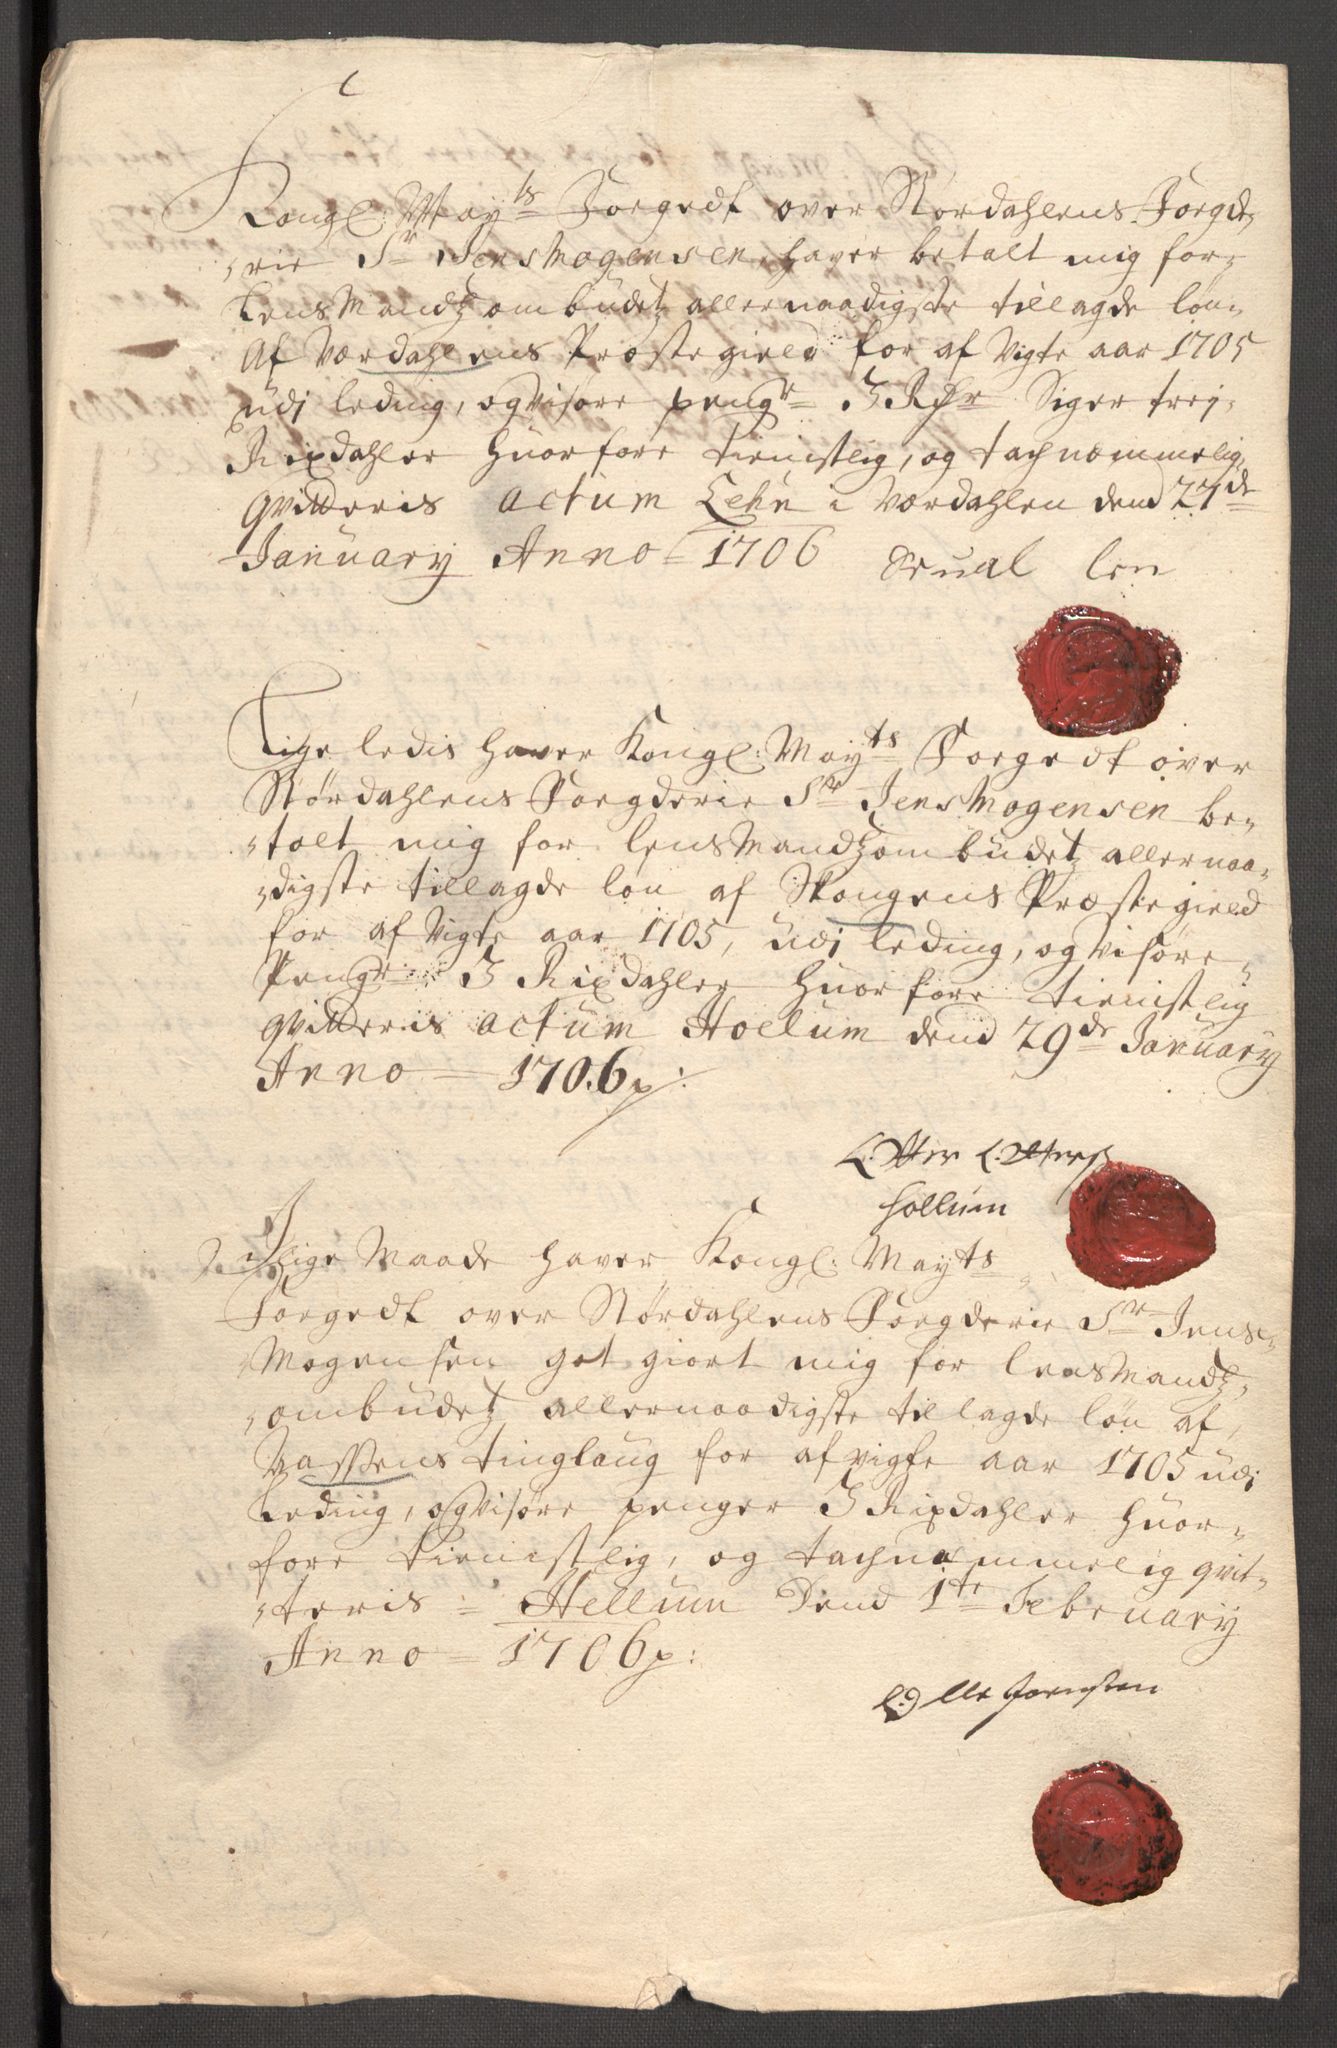 Kongl: May ts Foegedt over Størdahlens Foegde,,
,,rie Sr Jens Mogensen, haver betalt mig for,,
Lens Mandtz ombudetz allernaadigste tillagde løn,,
Af Værdahlens Præstegield for af Vigte aar 1705
udj leding, og Visøre pengr 3 Rdr Siger trej,,
Rixdahler huorfore tienistlig, og tachnemmelig,
qvitteris actum Lehn i Værdahlen dend 27de
January Anno = 1706 Seual len
Lige ledis haver Kongl: May ts Foegedt over
Størdahlens Foegderie Sr Jens Mogensen be,,
,,talt mig for lens Mandtz ombudetz allernaa,,
,,digste tillagde løn af Skongens Præstegield
for af Vigte aar 1705, udj leding, og visøre,,
Pengr 3 Rixdahler huorfore tienistlig
qvitteris actum Hollum dend 29de January
Anno = 1706 p:
L. Otter L. Otters
hollum
J lige Maade haver Kongl: May ts
Foegedt over Størdahlens Foegderie Sr Jens,,
,,Mogensen got giort mig for lens Mandtz,,
,,ombudetz allernaadigste tillagde løn af,
Vassens tinglaug for afvigte aar 1705 udj
Leding, og Visøre penger 3 Rixdahler huor,,
fore tienistlig, og tachnemmelig qvit,,
,,teris = Hellum Dend 1te February
Anno = 1706 p:
Olle Joensen